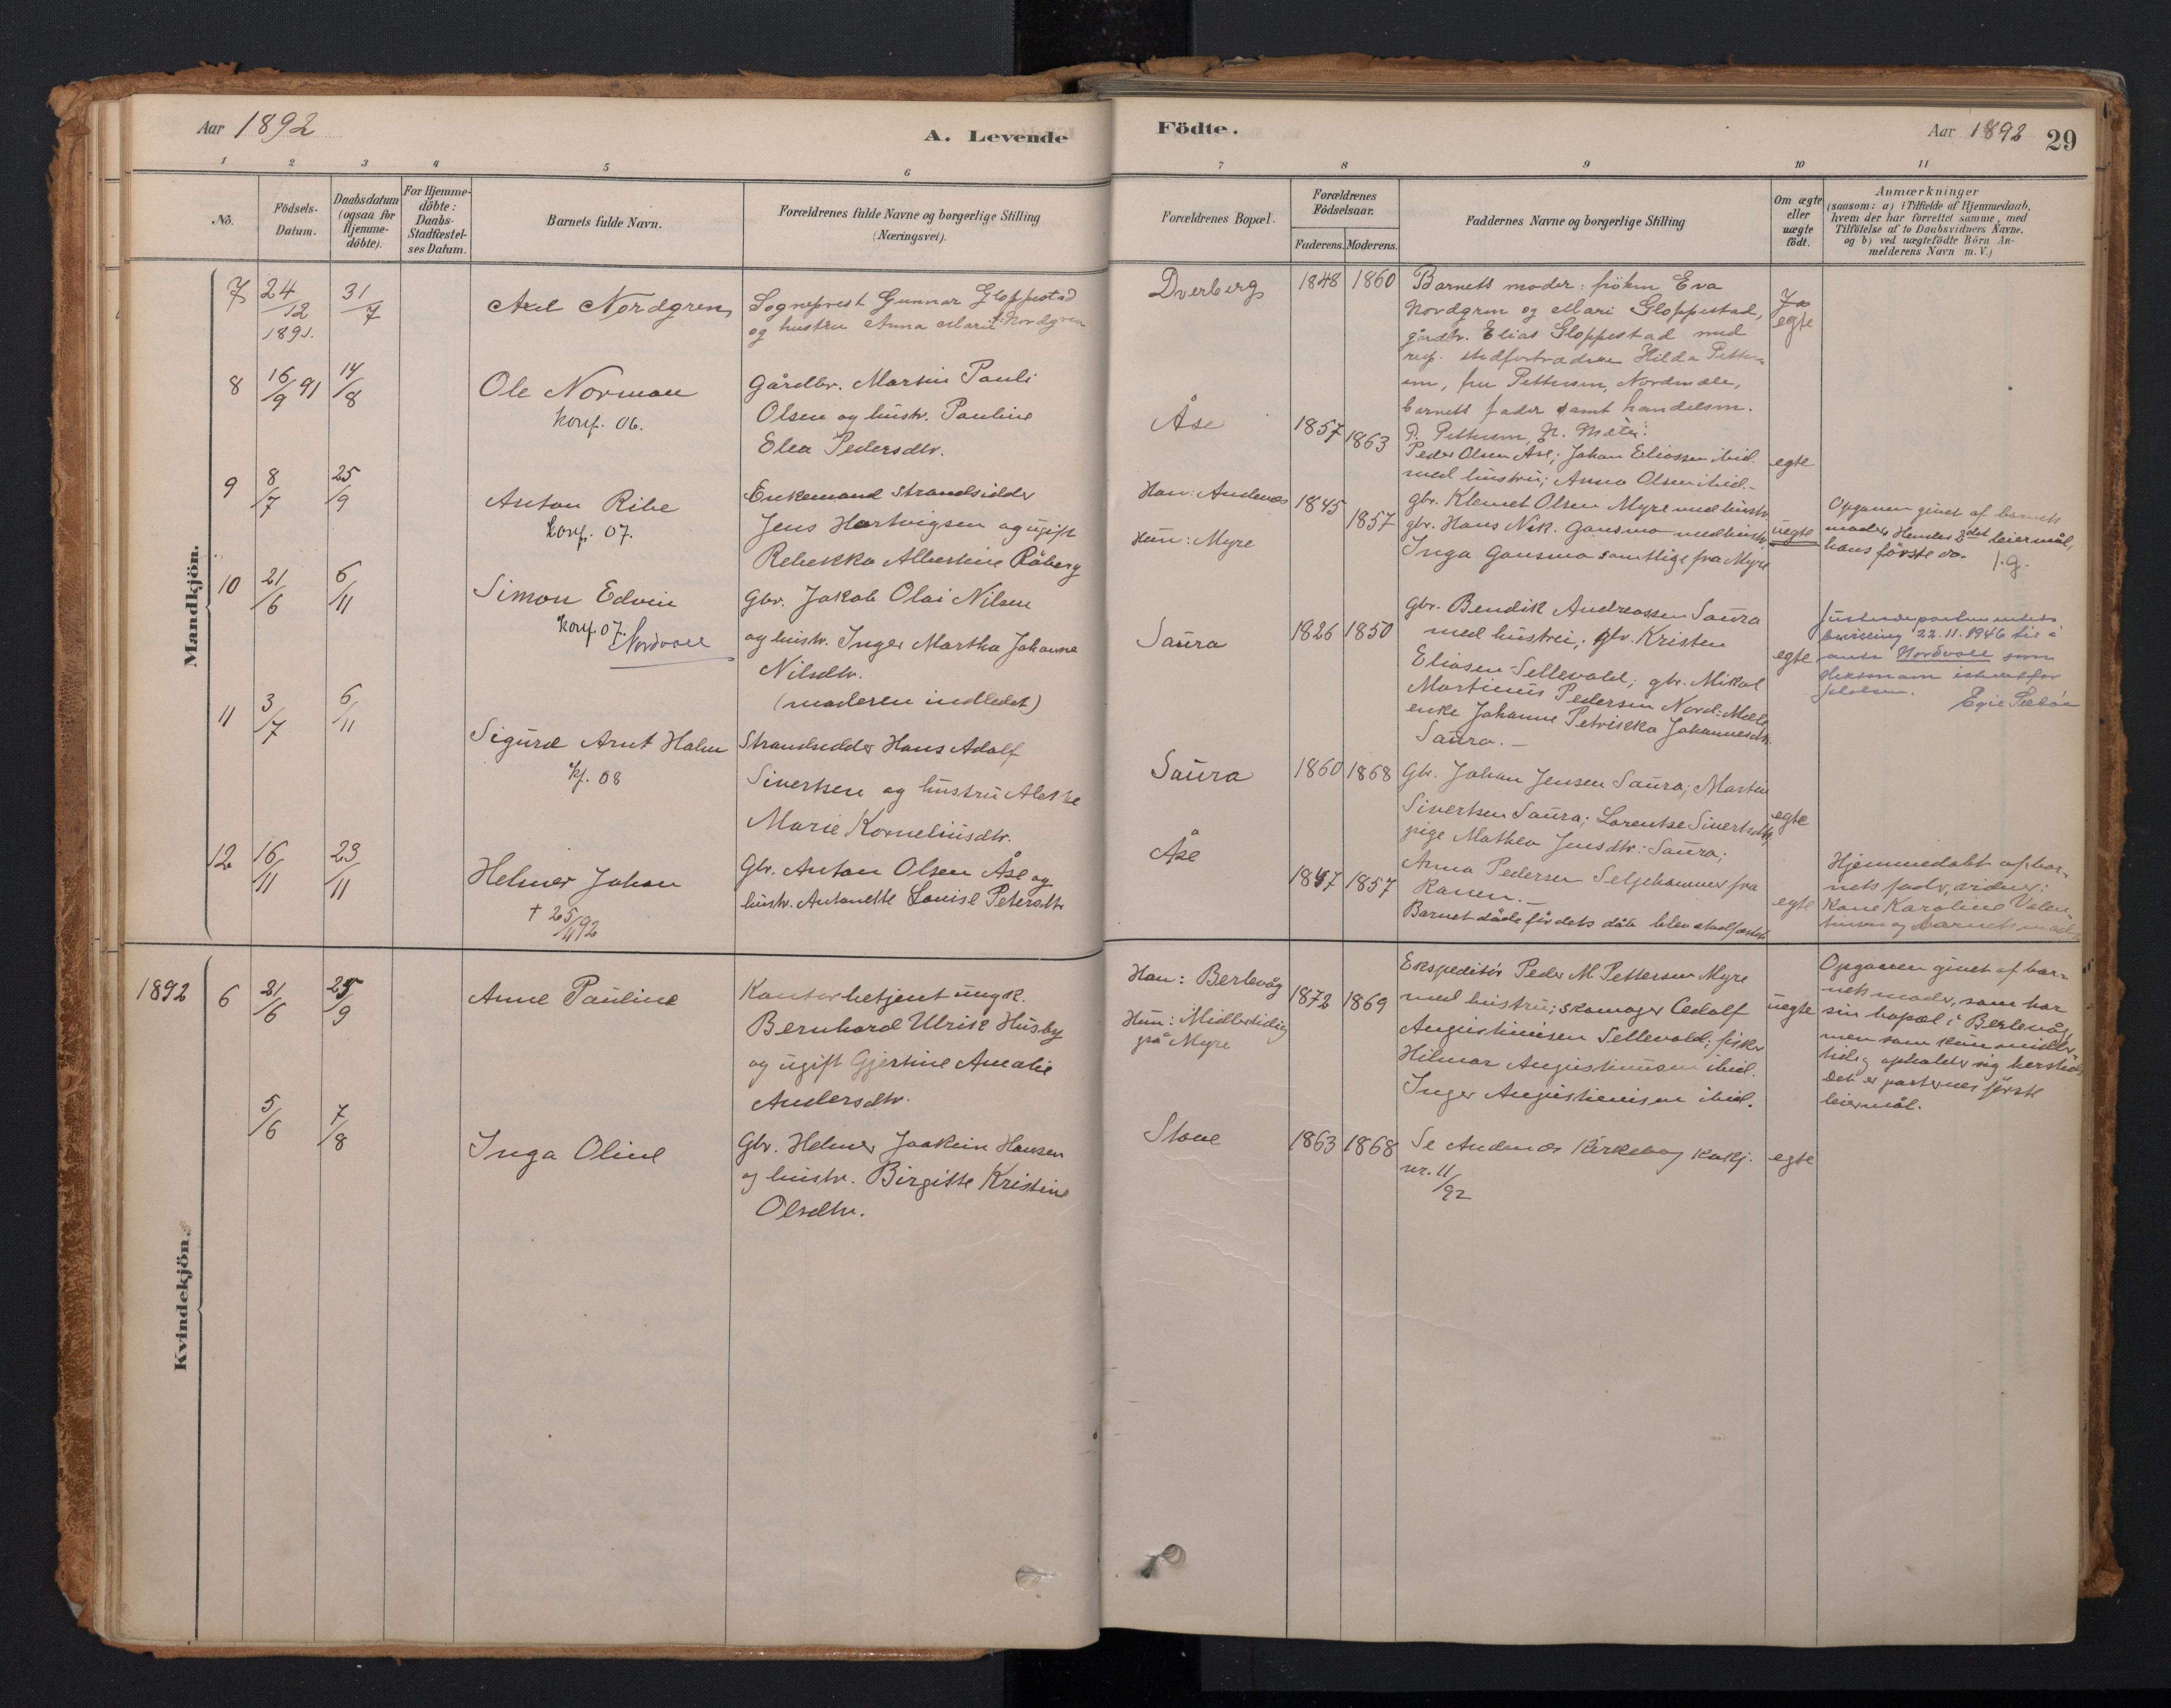 Aar 1892
A. Levende
Födte.
Aar 1892
29
1 2 3 4 5 6 7 8 9 10 11
No.
Födsels-
Datum.
Daabsdatum
(ogsaa för
Hjemme-
döbte).
For Hjemme-
döbte:
Daabs-
Stadfæstel-
ses Datum.
Barnets fulde Navn.
Forældrenes fulde Navne og borgerlige Stilling
(Næringsvei).
Forældrenes Bopæl.
Forældrenes
Födselsaar.
Faderens. Moderens.
Faddernes Navne og borgerlige Stilling
Om ægte
eller
uægte
födt.
Anmærkninger
(saasom: a) i Tilfælde af Hjemmedaab,
hvem der har forrettet samme, med
Tilföielse af to Daabsvidners Navne.
og b) ved uægtefödte Börn An-
melderens Navn m. V.)
Mandkjön.
7
24/12
1891.
31/7
Axel Nordgren
Sogneprest Gunnar Gloppestad
og hustru Anna Marie f: Nordgren
Dverberg
1848 1860
Barnets moder: frøken Eva
Nordgren og Mari Gloppestad,
gårdbr. Elias Gloppestad med
resp. stedfortrædere Hilda Petter-
sen, fru Pettersen, Nordmæle,
barnets fader samt handelsm.
P. Pettersen, N. Mæle.
Ja
egte
8
16/9 91
14/8
Ole Norman
konf. 06.
Gårdbr. Martin Pauli
Olsen og hustr. Pauline
Elea Pedersdtr.
Åse
1857 1863
Peder Olsen Åse; Johan Eliassen ibid.
med hustru; Anna Olsen ibid.-
egte
9
8/7
25/9
Anton Ribe
konf. 07.
Enkemand strandsidder
Jens Hartvigsen og ugift
Rebekka Albertine Råberg
Han: Andenæs
Hun: Myre
1845
1857
gbr. Klemet Olsen Myre med hustr.
gbr. Hans Nik. Gansmo med hustr.
Inga Gansmo samtlige fra Myre
uegte
Opgaven givet af barnets
moder. Hendes 2det leiermål,
hans første do. 1.g.
10
21/6
6/11
Simon Edvin
konf. 07.
Nordvoll
Gbr. Jakob Olai Nilsen
og hustr. Inger Martha Johanne
Nilsdtr.
(moderen indledet)
Saura
1826 1850
Gbr. Bendik Andreassen Saura
med hustru; gbr. Kristen
Eliasen Sellevold; gbr. Mikal
Martinus Pedersen Nord: Mæle,
enke Johanne Petrikka Johannesdtr.
Saura.-
egte
Justisdepartementets
bevilling 22.11.1946 til å
anta Nordvoll som
slektsnavn istedenfor
11
3/7
6/11
Sigurd Arnt Holm
kf. 08
Strandsidder Hans Adolf
Sivertsen og hustru Alette
Marie Korneliusdtr.
Saura
1860 1868
Gbr. Johan Jensen Saura; Martin
Sivertsen Saura; Lorentse Sivertsdtr;
pige Mathea Jensdtr: Saura;
Anna Pedersen Seljehamner fra
Ranen.-
egte
12
16/11
23/11
Helmer Johan
+ 25/11 92
Gbr. Anton Olsen Åse og
hustr. Antonette Louise Petersdtr
Åse
1847 1857
Barnet døde før dets dåb blev stadfæstet
egte
Hjemmedøbt af bar-
nets fader, vidner:
Kone Karoline Valen-
tinsen og barnets moder
Kvindekjön.
1892
6
21/6
25/9
Anne Pauline
Kontorbetjent ungk.
Bernhard Ulrik Husby
og ugift Gjertine Amalie
Andersdtr.
Han: Berlevåg
Hun: Midlertidig
på Myre
1872 1869
Ekspeditør Peder M. Pettersen Myre
med hustru; skomager Adolf
Augustinusen Sellevold; fisker
Hilmar Augustinusen ibid.
Inger Augustinusen ibid.
uegte
Opgaven givet af bar-
nets moder, som har
sin bopæl i Berlevåg,
men som kun midler-
tidig opholder sig hersteds
Det er parternes første
leiermål.
5/6
7/8
Inga Oline
Gbr. Helmer Joakim Hansen
og hustr. Birgitte Kristine
Olsdtr.
Stave
1863 1868
Se Andenæs Kirkebog Kvkj.
nr. 11/92
egte